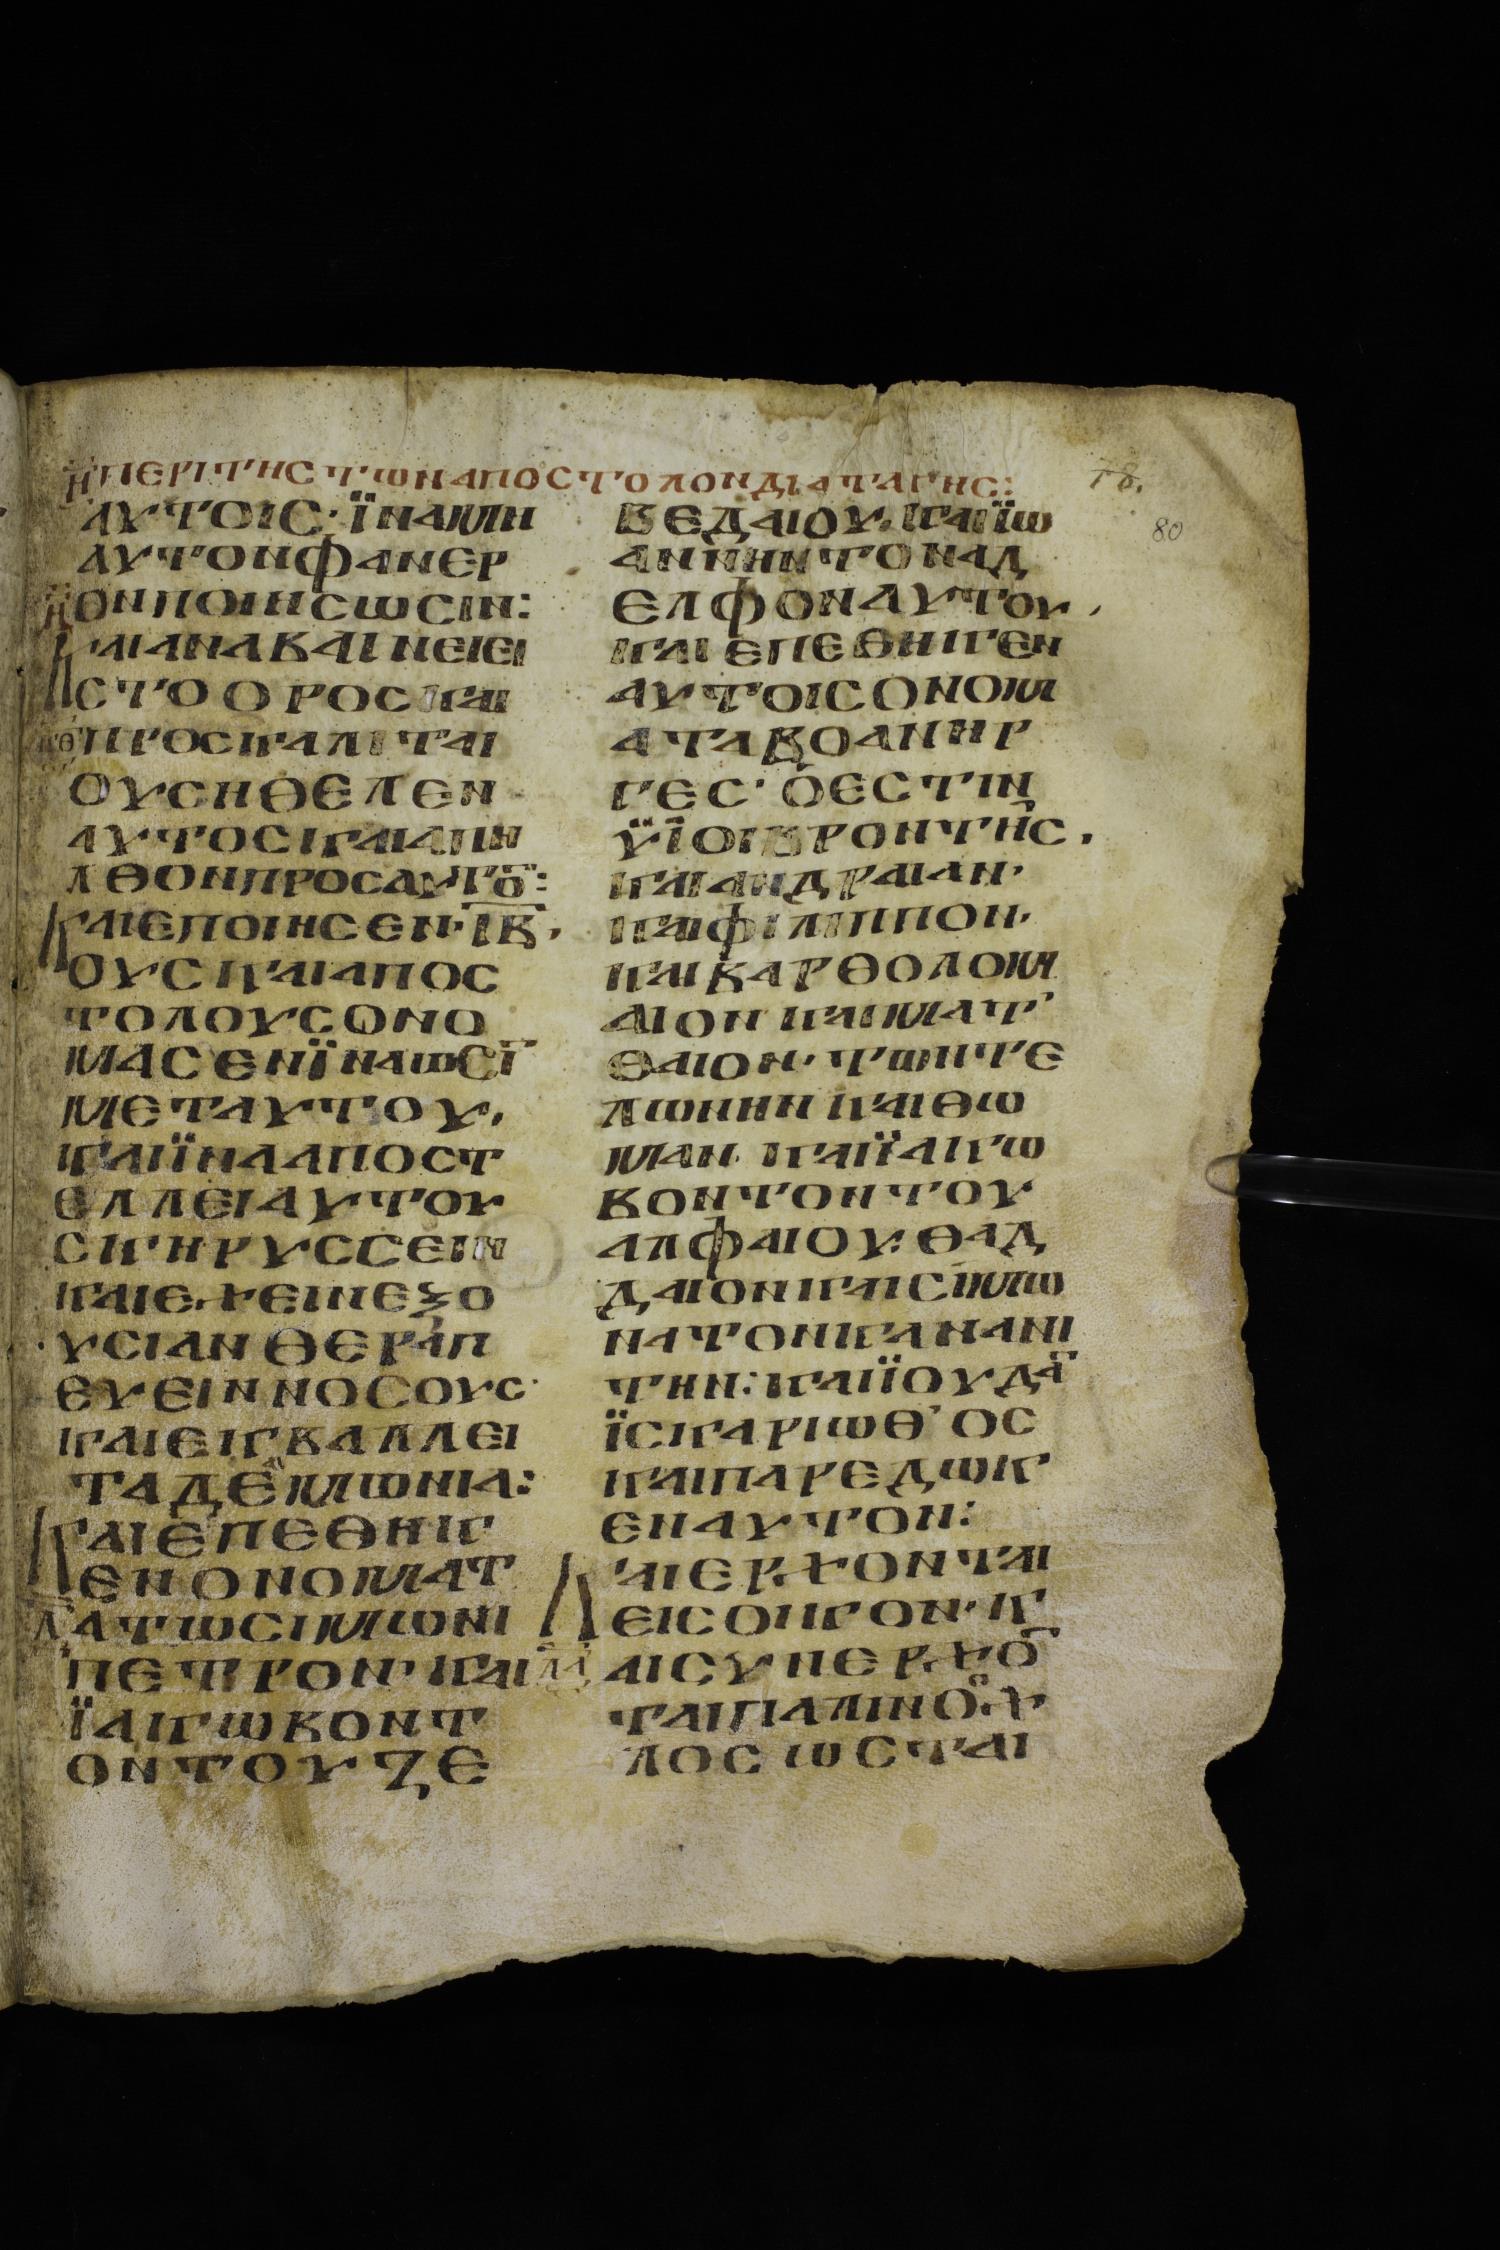 Η ΠΕΡΙ ΤΗС ΤⲰΝ ΑΠΟСΤΟΛΟΝ ΔΙΑΤΑΓΗС:
78.
80
ΑΥΤΟΙС· ΪΝΑΜΗ
ΑΥΤΟΝΦΑΝΕΡ
ΟΝΠΟΙΗСⲰСΙΝ:
ΚΑΙΑΝΑΒΑΙΝΕΙΕΙ
СΤΟΟΡΟСΚΑΙ
ΠΡΟСΚΑΛΙΤΑΙ
ΟΥСΗΘΕΛΕΝ
ΑΥΤΟСΚΑΙΑΠΗ
ΛΘΟΝΠΡΟСΑΥΤΟ̅:
ΚΑΙΕΠΟΙΗСΕΝ·Ι̅Β̅·
ΟΥСΚΑΙΑΠΟС
ΤΟΛΟΥСΩΝΟ
ΜΑСΕΝΪΝΑⲰСΙ̅
ΜΕΤΑΥΤΟΥ·
ΚΑΙΪΝΑΑΠΟСΤ
ΕΛΛΕΙΑΥΤΟΥ
СΚΗΡΥССΕΙΝ
ΚΑΙΕΧΕΙΝΕΞΟ
ΥСΙΑΝΘΕΡΑΠ
ΕΥΕΙΝΝΟСΟΥС·
ΚΑΙΕΚΒΑΛΛΕΙ
ΤΑΔΕΜⲰΝΙΑ:
ΚΑΙΕΠΕΘΗΚ
ΕΝΟΝΟΜΑΤ
ΑΤⲰСΙΜⲰΝΙ
ΠΕΤΡΟΝ·ΚΑΙ
ΪΑΚⲰΒΟΝΤ
ΟΝΤΟΥΖΕ
ΒΕΔΑΙΟΥ·ΚΑΙΪⲰ
ΑΝΝΗΝΤΟΝΑΔ
ΕΛΦΟΝΑΥΤΟΥ·
ΚΑΙΕΠΕΘΗΚΕΝ
ΑΥΤΟΙСΟΝΟΜ
ΑΤΑΒΟΑΝΗΡ
ΓΕС·ΟΕСΤΙΝ
ΫΪΟΙΒΡΟΝΤΗС·
ΚΑΙΑΝΔΡΑΙΑΝ·
ΚΑΙΦΙΛΙΠΠΟΝ·
ΚΑΙΒΑΡΘΟΛΟΜ
ΑΙΟΝΚΑΙΜΑΤ
ΘΑΙΟΝ·ΤⲰΝΤΕ
ΛⲰΝΗΝΚΑΙΘⲰ
ΜΑΝ·ΚΑΙΪΑΚⲰ
ΒΟΝΤΟΝΤΟΥ
ΑΛΦΑΙΟΥ·ΘΑΔ
ΔΑΙΟΝΚΑΙСΙΜⲰ
ΝΑΤΟΝΚΑΝΑΝΙ
ΤΗΝ:ΚΑΙΪΟΥΔΑ̅
ΪСΚΑΡΙⲰΘ᾽ΟС
ΚΑΙΠΑΡΕΔⲰΚ
ΕΝΑΥΤΟΝ:
ΚΑΙΕΡΧΟΝΤΑΙ
ΕΙСΟΗΚΟΝ·Κ
ΑΙСΥΝΕΡΧΟ̅
ΤΑΙΠΑΛΙΝΟΧ
ΛΟСⲰСΤΑΙ